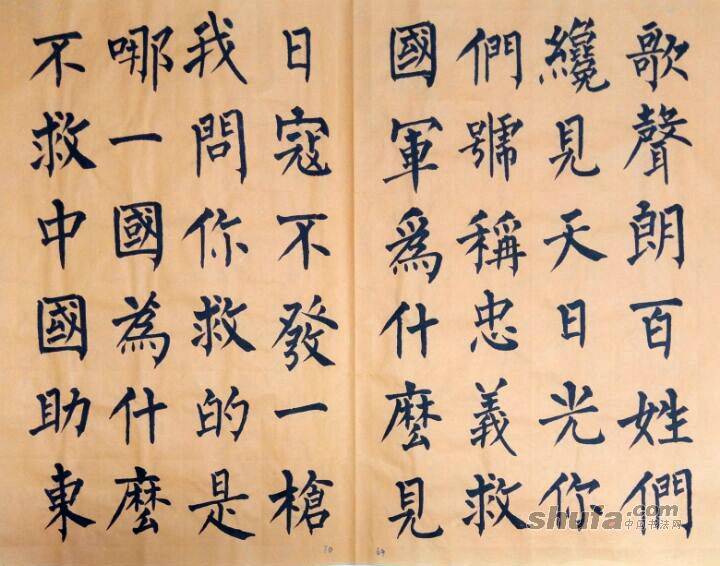 歌聲朗百姓們
纔見天日光你
們號稱忠義救
國軍爲什麼見
日寇不發一槍
我問你救的是
哪一國為什麼
不救中國助東
70
69
shufa.com
中国书法网